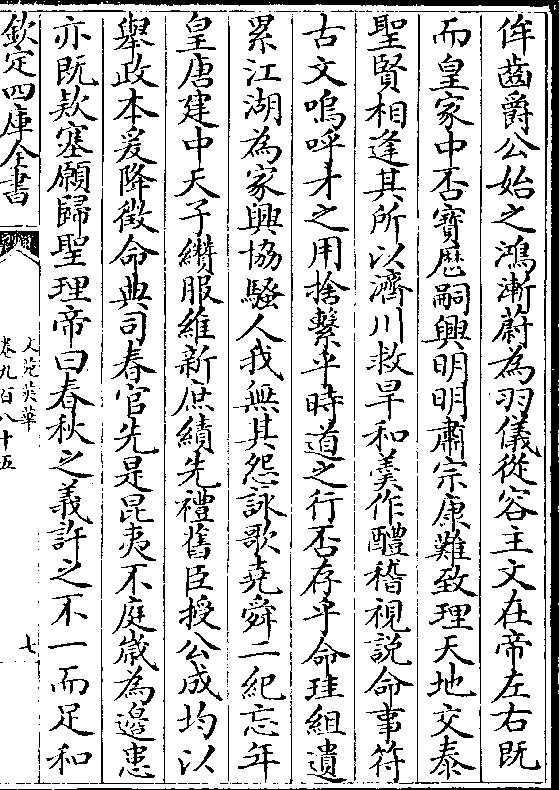 侔齒爵公始之鴻漸蔚為羽儀從容主文在帝左右既
而皇家中否寳厯嗣興明明肅宗康難致理天地交泰
聖賢相逢其所以濟川救旱和羹作醴稽視説命事符
古文嗚呼才之用捨繫乎時道之行否存乎命珪組遺
累江湖為家興協騷人我無其怨詠歌堯舜二紀忘年
皇唐建中天子纉服維新庶績先禮舊臣授公成均以
舉政本爰降徴命典司春官先是昆夷不庭嵗為邉患
亦既欵塞願歸聖理帝曰春秋之義許之不一而足和
欽定四庫全書
文苑英華
卷九百八十五
七